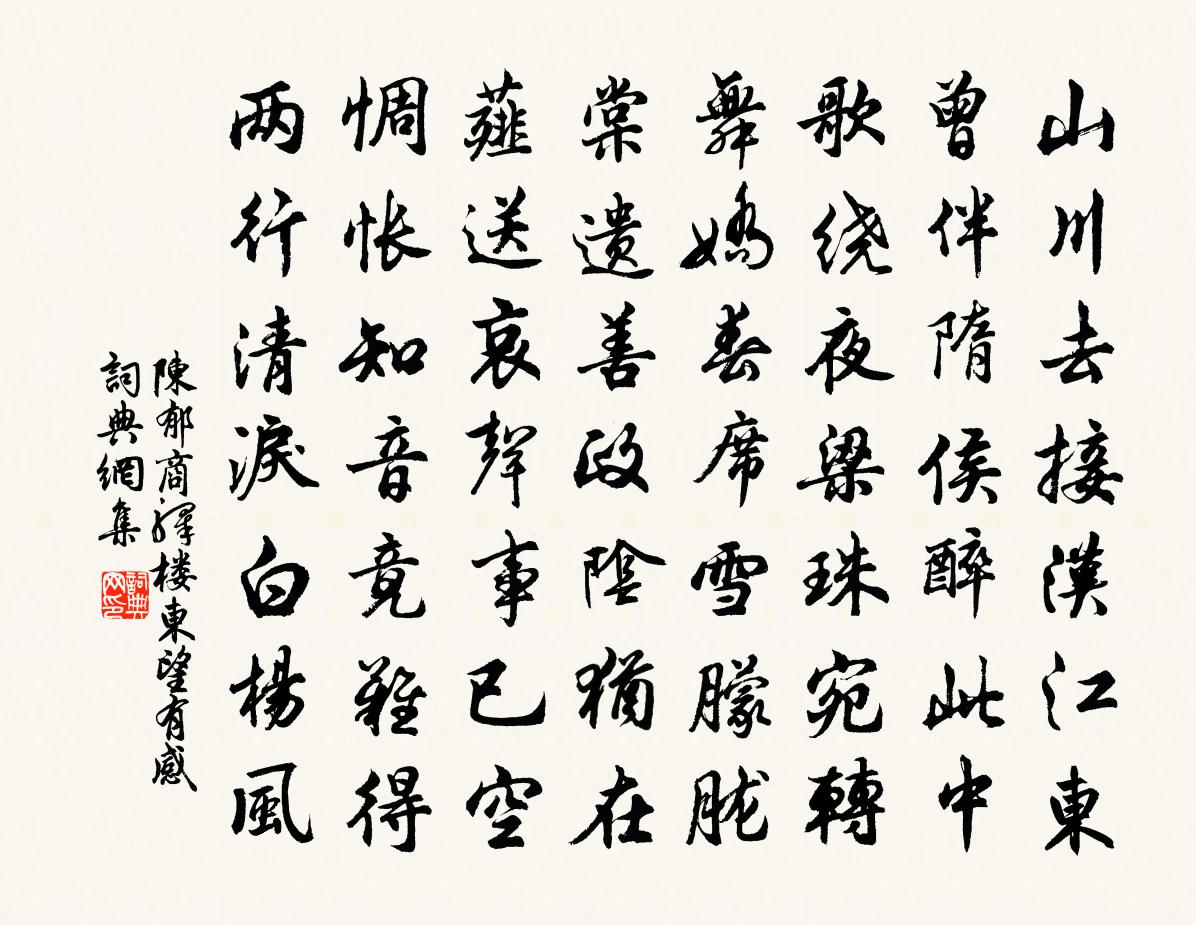 山川去接漢江東
曾伴隋侯醉此中
歌绕夜梁珠宛轉
舞嬌春席雪朦胧
棠遗善政陰猶在
薤送哀聲事已空
惆怅知音竟難得
两行清淚白楊風
陳郁商驛楼東望有感
詞典網集
詞典网印